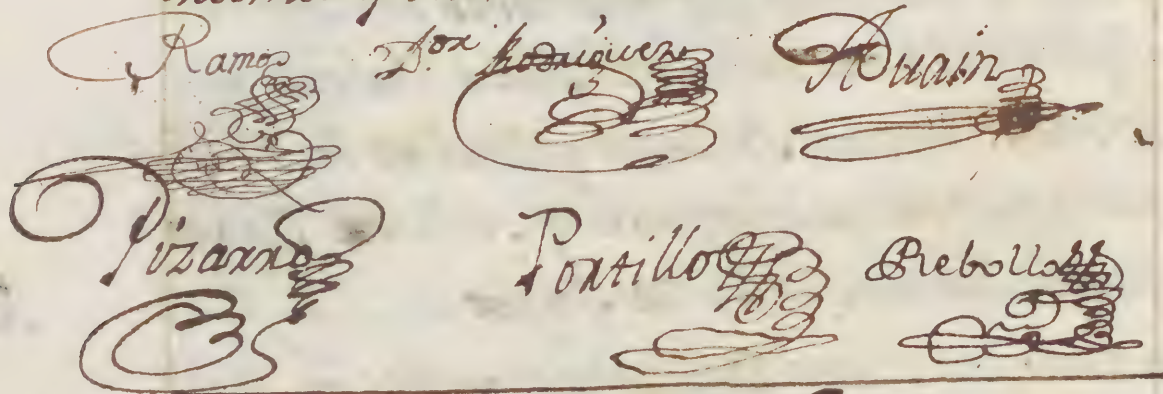 Ramos Dor Rodriguez
Pizarro Portillo Rebollo